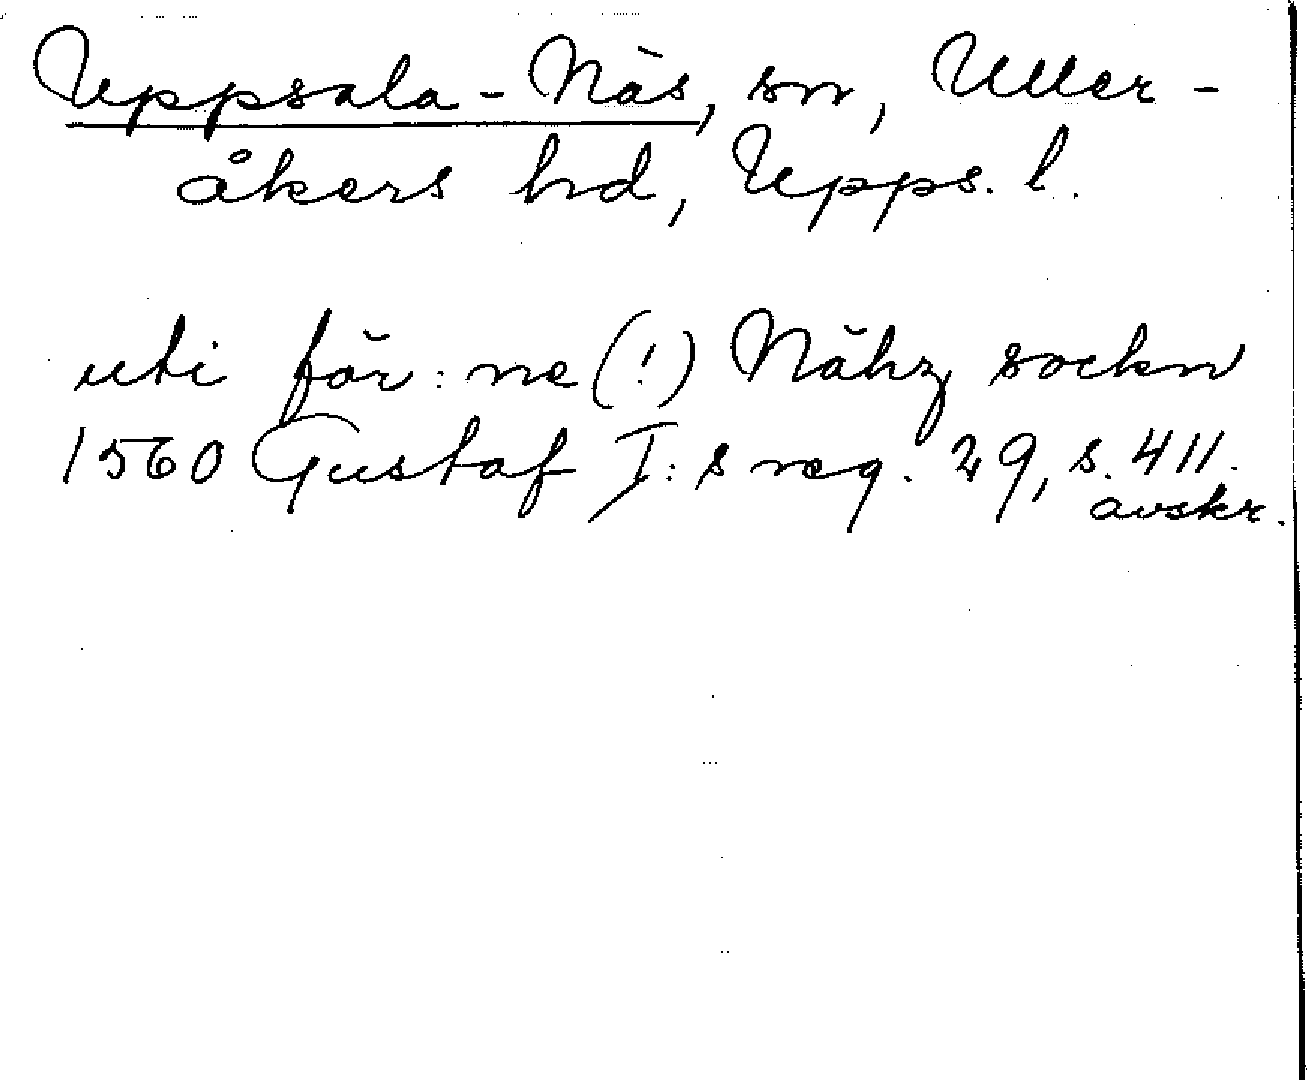 Uppsala-Näs, sn, Uller-
åkers hd, Upps. l.
uti för:ne (!) Nähz sockn
1560 Gustaf I:s reg. 29, s. 411.
avskr.